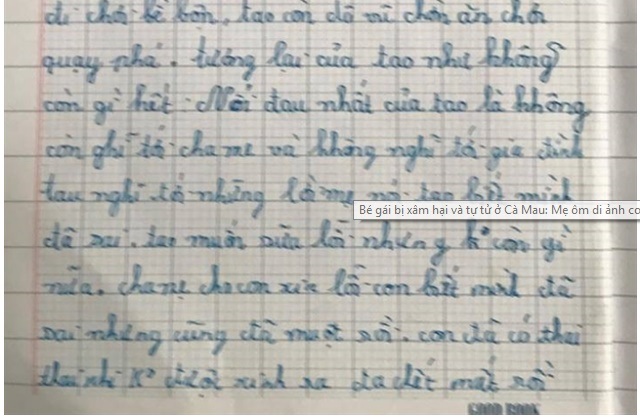 đi chơi bè bạn, tao còn đô mì chơn ăn chơi
quạy phá. tương lại của tao như không
còn gì hết. Nỗi đau nhất của tao là không
còn ghỉ tá cha mẹ và không nghỉ tá gia đình
tau nghỉ tá những lời mẹ nó tao biết mình
Bé gái bị xâm hại và tự tử ở Cà Mau: Mẹ ôm di ảnh co
đã sai. tao muốn sửa lỗi nhưng k° còn gì
nữa. cha mẹ cho con xin lỗi con biết mình đã
sai nhưng cũng đã muợt rồi. con đã có thai
thai nhi k° được sinh ra đã chết mất rồi
GOOD BOOK